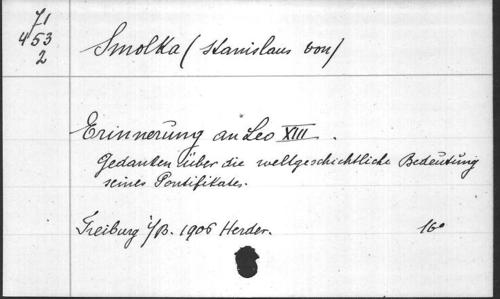 71
453
2
Smolka (Stanislaus von)
Erinnerung an Leo XIII.
Gedanken über die weltgeschichtliche Bedeutung
seines Pontifikates.
Freiburg i/B. 1906 Herder. 16°